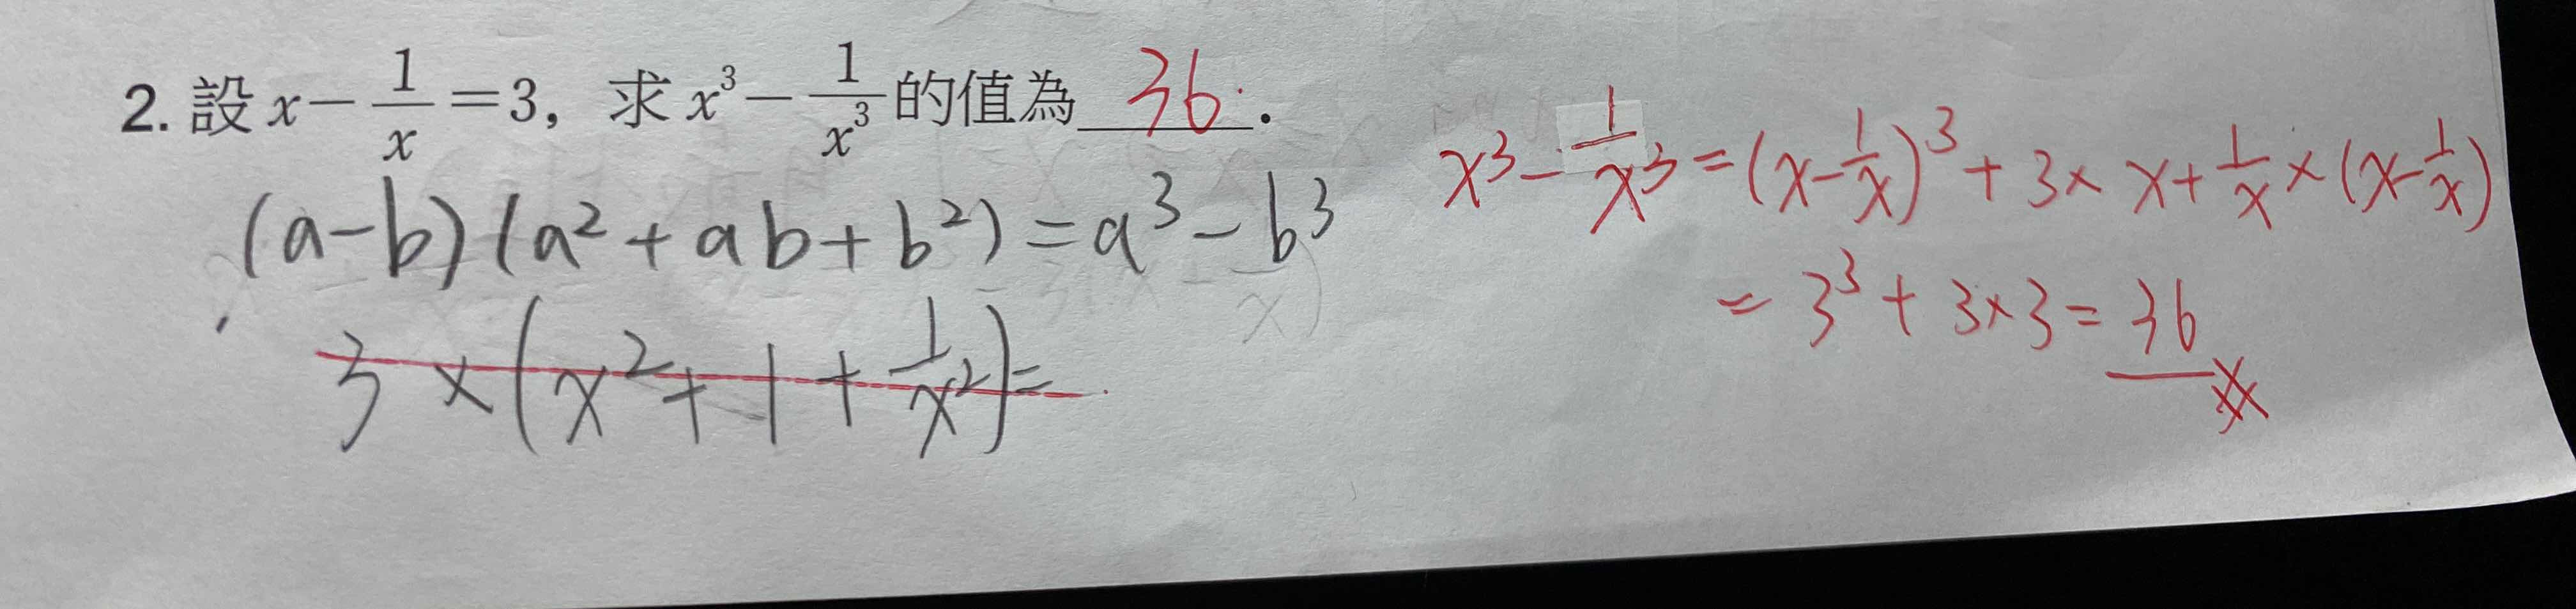 2. 設 x − 1/x = 3, 求 x³ − 1/x³ 的值為 36.
(a-b)(a²+ab+b²)=a³-b³
3×(x²+1+1/x²)=
x³-1/x³=(x-1/x)³+3×x+1/x×(x-1/x)
=3³+3×3=36